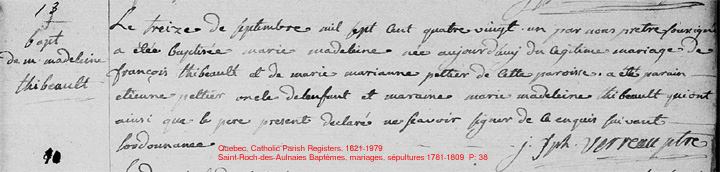 13
7
bapt
de m. madeleine
thibeault
Le treize de septembre mil sept cent quatre vingt un par nous pretre soussigné
a etée baptisée marie madeleine née aujourd'huy du legitime mariage de
françois thibeault et de marie marianne peltier de cette paroisse. a eté parain
etienne peltier oncle de lenfant et maraine marie madeleine thibeault qui ont
ainsi que le pere present declaré ne scavoir signer de ce enquis suivant
lordonnance
j. Jph. verreau ptre
Quebec, Catholic Parish Registers, 1621-1979
Saint-Roch-des-Aulnaies Baptêmes, mariages, sépultures 1781-1809 P: 38